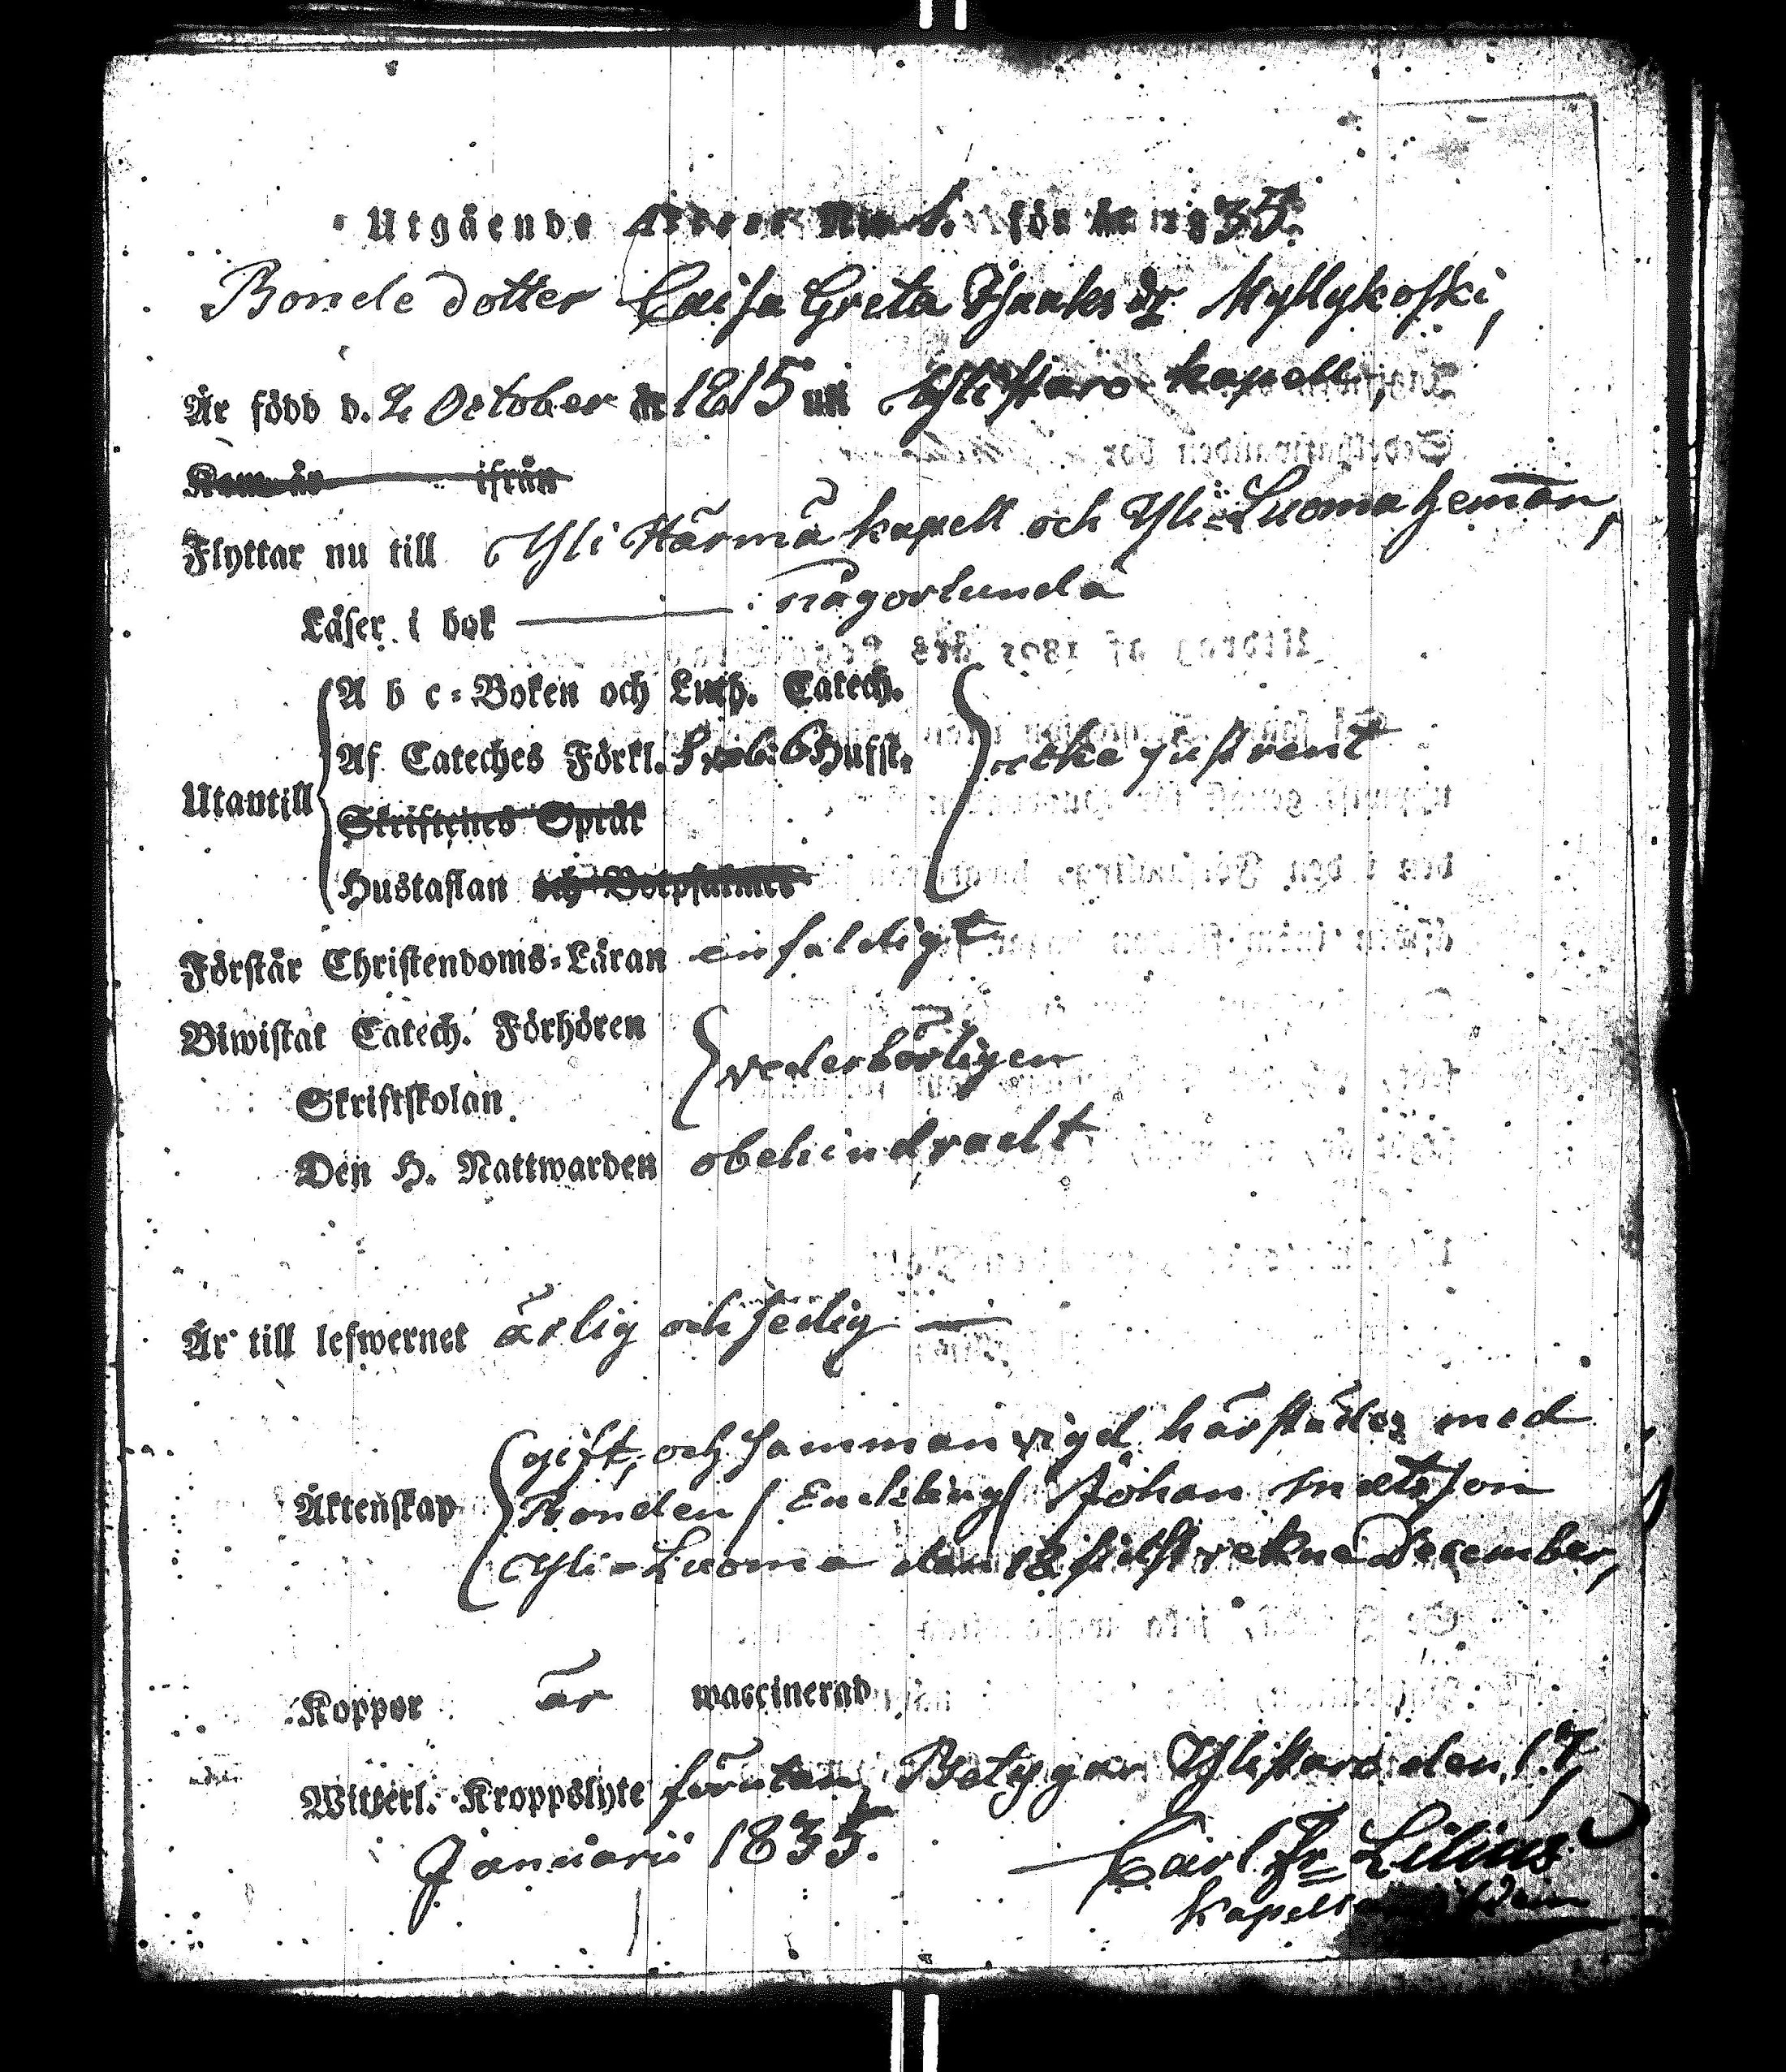 Utgående Attest Num 1. för år 1835.
Bonde dotter Caisa Greta Isaaksdr Myllykoski,
Är född d. 2 October år 1815 uti Ylistaro kapell,
Kom år ifrån
Flyttar nu till Yli Härmä kapell och Yli-Luoma heman,
Läser i bok någorlunda
A b c-Boken och Luth. Catech.
Af Cateches Förkl. Hufst. icke just rent
Utantill
Skriftenes Språk
Hustaflan och Botpsalmer
Förstår Christendoms-Läran enfaldigt
Biwistat Catech. Förhören
vederbörligen
Skriftskolan
Den H. Nattwarden obehindradt
Är till lefwernet ärlig och sedig
gift, och sammanvigd härstädes med
Äktenskap Bonden / Enkling / Johan Matsson
Yli-Luoma den 18 sidstvekne December,
Koppor är waccinerad
Witterl. Kroppslyte förutan, Betygar Ylistaro den 17
Januarii 1835. Carl Fr Lilius